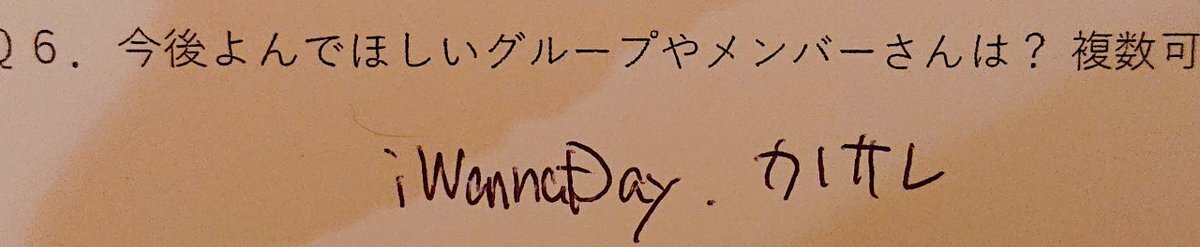 Q6. 今後よんでほしいグループやメンバーさんは? 複数可
iWannaDay. カイサレ